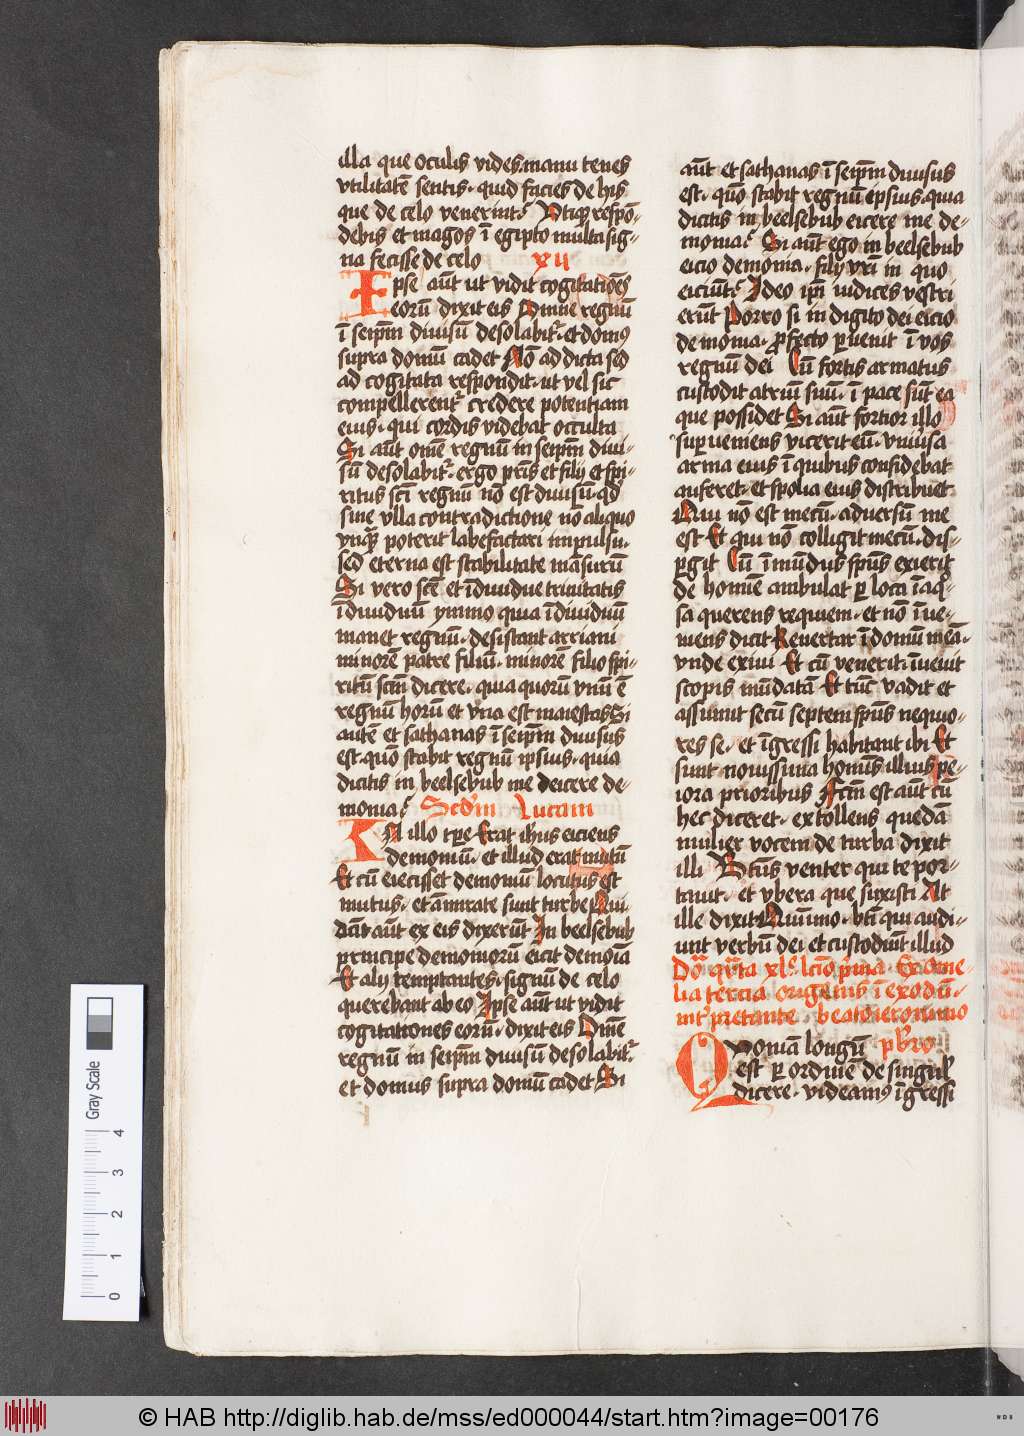 illa que oculis vides manu tenes
vtilitatē sentis · quid facies de his
que de celo veneriut᷑ Vtiqꝫ respō-
debis et magos ī egipto multa sig-
na fecisse de celo xii
Ipse aūt ut vidit cogitatiōes
eorū dixit eis Omne regnū
ī seip̄m diuisū desolabit᷑ · et domꝰ
supra domū cadet Nō ad dicta sed
ad cogitata respondit · ut vel sic
compellerent᷑ credere potentiam
eius · qui cordis videbat occulta
Si aūt om̄e regnū in seip̄m diui-
sū desolabit᷑ · ergo pr̄is et filij et spi-
ritus sc̄i regnū nō est diuisū · qd̄
sine vlla contradictione nō aliquo
vnqꝫ poterit labefactari impulsu ·
sed eterna est stabilitate māsurū
Si vero sc̄e et īdiuidue trinitatis
īdiuiduū ymmo quia īdiuiduū
manet regnū · desistant arriani
minorē patre filiū · minorē filio spi-
ritū sc̄m dicere · quia quorū vnū ē
regnū horū et vna est maiestas Si
autē et sathanas ī seip̄m diuisus
est · quō stabit regnū ipsius · quia
dicitis in beelsebub me deicere de-
monia᷑ Scd̄m Lucam
IN illo tꝑe Erat ih̄us eiciens
demoniū · et illud erat mutū
Et cū eiecisset demoniū locutus est
mutus · et ām̄irate sunt turbe Qui-
dā aūt ex eis dixerūt In beelsebub
principe demoniorū eicit demoīa
Et alij temptantes · signū de celo
querebant ab eo Ipse aūt ut vidit
cogitationes eorū · dixit eis Om̄e
regnū in seip̄m diuisū desolabit᷑ ·
et domus supra domū cadet Si
aūt et sathanas ī seip̄m diuisus
est · quō stabit regnū epsius · quia
dicitis in beelsebub eicere me de-
monia᷑ Si aūt ego in beelsebub
eicio demonia · filij vr̄i in quo
eiciūt᷑ Ideo ip̄i iudices vestri
erūt Porro si in digito dei eicio
demonia · ꝓfecto ꝑuenit ī vos
regnū dei Cū fortis armatus
custodit atriū suū · ī pace sūt ea
que possidet Si aūt fortior illo
suꝑueniens vicerit eū · vniūsa
arma eius ī quibus confidebat
auferet · et spolia eius distribuet
Qui nō est mecū · aduersū me
est Et qui nō colligit mecū · dis-
ꝑgit Cū īmūdus sp̄us exierit
de homīe ambulat ꝑ loca īaq̄-
sa querens requiem · et nō īue-
niens dicit Reuertar ī domū meā ·
vnde exiui Et cū venerit · īuenit
scopis mūdatā Et tūc vadit et
assumit secū septem sp̄us nequio-
res se · et īgressi habitant ibi Et
sunt nouissima homīs illius pe-
iora prioribus Fc̄m est aūt cū
hec diceret · extollens quedā
mulier vocem de turba dixit
illi Btūs venter qui te por-
tauit · et vbera que suxisti At
ille dixit Quīimo · bt̄i qui audi-
unt verbū dei et custodiūt illud
Dn̄ica qͣrta xlᵉ lc̄io p̄ma · Ex ome-
lia tercia origenis ī exodū ·
int᷑pretante · beato ieronimo
Qvoniā longū pb̄ro
est ꝑ ordinē de singulꝭ
dicere · videamꝰ īgressi
© HAB http://diglib.hab.de/mss/ed000044/start.htm?image=00176
Gray Scale
4
3
2
1
0
WDB